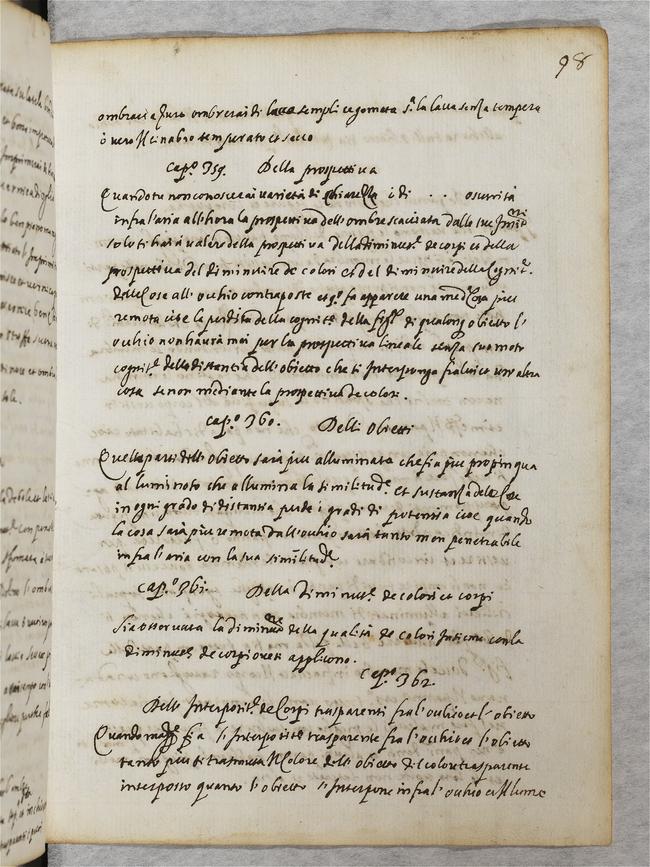 98
ombraria scuro ombrerai di lacca semplice gomata s.ª la lacca senza tempera
ò vero il cinabro temperato et secco
Cap.º 359. Della prospettiva
Quando tu non conoscerai varietà di chiarezza i di . . oscurità
infra l'aria all'hora la prospettiva dell'ombre scacciata dalla tue
solo ti harà valere della prospettiva della diminut.e de corpi et della
prospettiva del diminuire de colori et del diminuire della Cognit.e
delle Cose all'ochio contraposte et q.º fa apparere una med.ª Cosa piu
remota cioè la perdita della cognit.e della fig.ª di qualonq obietto l'
ochio non haurà mai per la prospettiva lineale senza suo moto
cognit.e della distantia dell'obietto che ti Interponga fra lui et un'altra
cosa se non mediante la prospettiva de colori.
cap.º 360. Delli Obietti
Quella parte dell'obietto sarà piu alluminata che sia piu propinqua
al luminoso che allumina la similitud.e et sustanza delle Cose
in ogni grado di distantia perde i gradi di potentia cioè quando
la cosa sarà piu remota dall'ochio sarà tanto men penetrabile
infra l'aria con la sua similitud.e
cap.º 361. Della diminut.e de colori et corpi
Sia osservata la diminut.ne della qualità de colori Insieme con la
diminut.e de corpi ove si applicono.
Cap.º 362.
Dello Interposit.e de Corpi trasparenti fra l'ochio et l'obietto
Quando mag.r sia l'Interposit.e trasparente fra l'occhio et l'obietto
tanto piu si trasmuta il Colore dell'obietto del color trasparente
interposto quanto l'obietto s'Interpone infra l'ochio et il lume